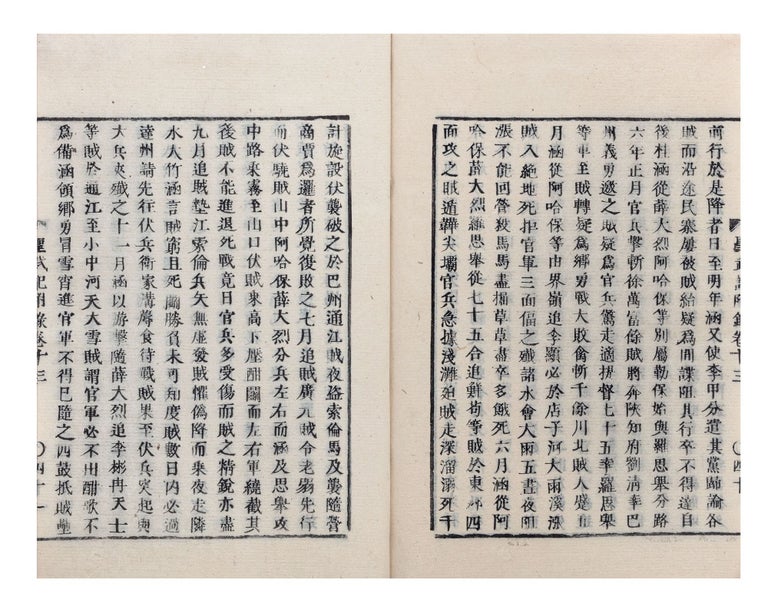 聖武記附錄卷十三 〇四十
前行於是降者日至明年涵又使李甲分遣其黨諭各
賊而沿途民寨屢被賊紿疑爲間諜阻其行卒不得達自
後桂涵從薛大烈阿哈保等別屬勒保始與羅思舉分路
六年正月官兵擊斬徐萬富餘賊將奔陝知府劉清率巴
州義勇邀之賊疑爲官兵驚走適提督七十五率羅思舉
等至賊轉疑爲鄉勇大敗禽斬千餘川北賊大蹙五
月涵從阿哈保等由界嶺追李顯必於店子河大雨溪漲
賊入絕地死拒官軍三面偪之殲諸水會大雨五晝夜阻
漲不能回營殺馬馬盡掘草草盡卒多餓死六月涵從阿
哈保薛大烈羅思舉從七十五合追鮮苟等賊於東鄉四
面攻之賊遁鞾尖壩官兵急據淺灘廹賊走深溜溺死千
計施設伏襲破之於巴州通江賊夜盜索倫馬及襲隨營
商賈爲邏者所覺復敗之七月追賊廣元賊令老弱先行
而伏驍賊山中阿哈保薛大烈分兵左右而涵及思舉攻
中路乘霧至山口伏賊乘高下壓酣鬭而左右軍繞截其
後賊不能進退死戰竟日官兵多受傷而賊之精銳亦盡
九月追賊墊江索倫兵矢無虛發賊懼僞降而乘夜走隣
水大竹涵言賊窮且死鬭勝負未可知度賊數日內必過
達州請先行伏兵衛家溝蓐食待戰賊果至伏兵突起與
大兵夾殲之十一月涵以游擊隨薛大烈追李彬冉天士
等賊於通江至小中河天大雪賊謂官軍必不出酣歌不
爲備涵領鄉勇冒雪宵進官軍不得已隨之四鼓抵賊壘
聖武記附錄卷十三 〇四十一